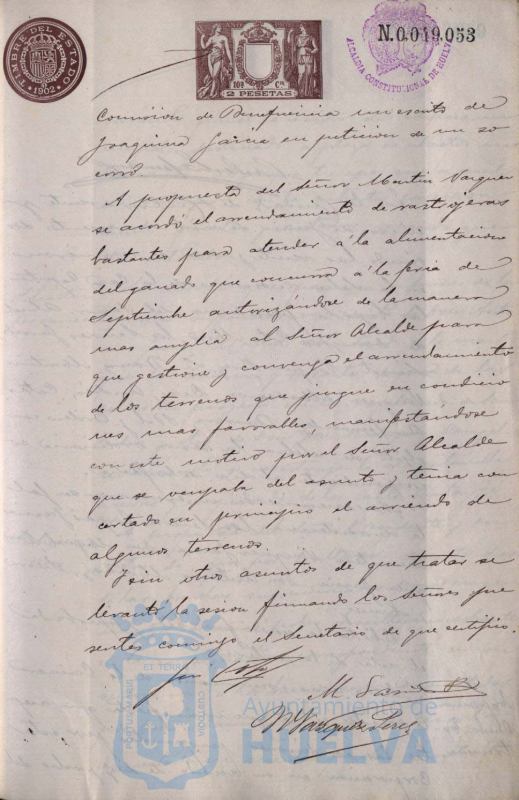 TIMBRE DEL ESTADO
1902
AÑO
10ª Cª
2 PESETAS
ALCALDIA CONSTITUCIONAL DE HUELVA
N.0.019.053
Comisión de Beneficencia un escrito de
Joaquina Garcia en petición de un so
corro.
A propuesta del Señor Martin Vazquez
se acordó el arrendamiento de rastrojeras
bastantes para atender á la alimentacion
del ganado que concurra á la feria de
Septiembre autorizándose de la manera
mas amplia al Señor Alcalde para
que gestione y convenga el arrendamiento
de los terrenos que juzgue en condicio
nes mas favorables, manifestándose
con este motivo por el Señor Alcalde
que se ocupaba del asunto y tenia con
certado en principio el arriendo de
algunos terrenos.
Y sin otros asuntos de que tratar se
levantó la sesion firmando los Señores pre
sentes conmigo el Secretario de que certifico.
M.
M Vazquez Perez
PORTUS MARIS
ET TERRÆ
CUSTODIA
Ayuntamiento de
HUELVA